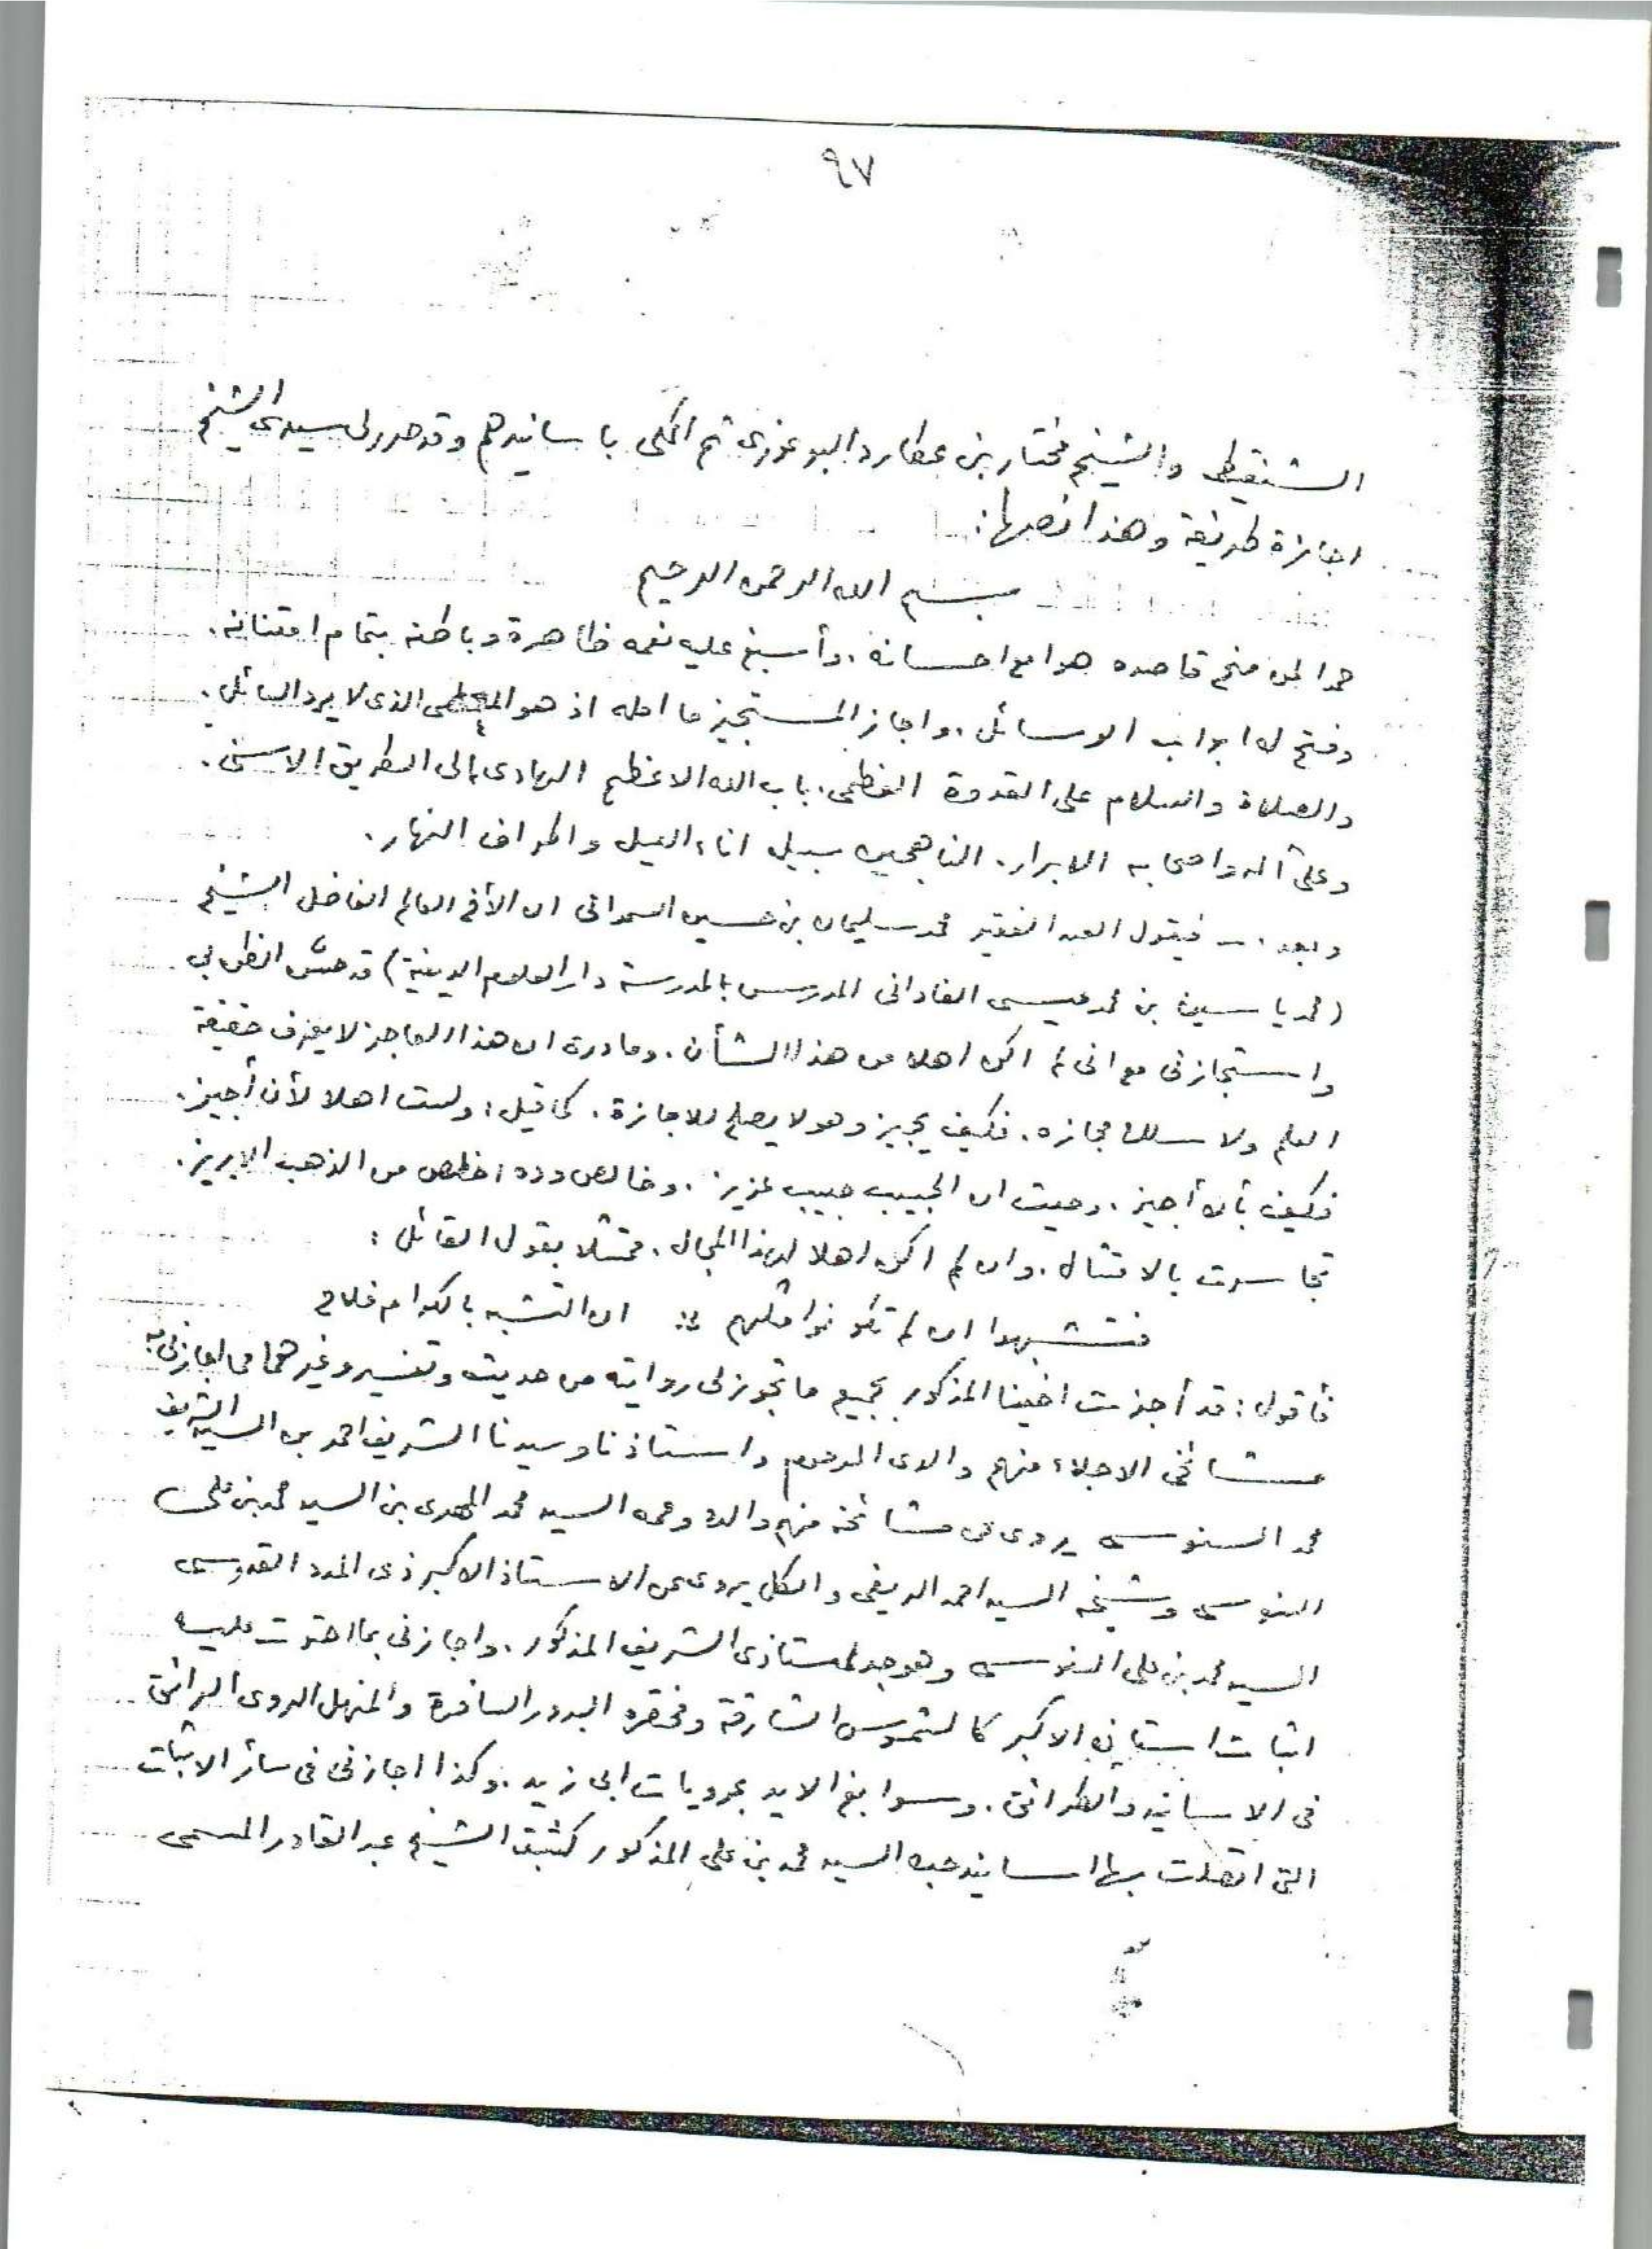 ٩٧
الشنقيطي والشيخ مختار بن عطارد البوغوري ثم المكي بأسانيدهم وقد حرر لى سيدى الشيخ
اجازة طريفة وهذا نصها:
بسم الله الرحمن الرحيم
حمدا لمن منح قاصده هوامع احسانه، وأسبغ عليه نعمه ظاهرة وباطنة بتمام امتنانه.
وفتح له ابواب الوسائل، واجاز المستجيز ما امله اذ هو المعطى الذى لا يرد السائل.
والصلاة والسلام على القدوة العظمى، باب الله الاعظم الهادى إلى الطريق الاسنى.
وعلى آله واصحابه الابرار. الناهجين سبيله اناء الليل واطراف النهار.
وبعد .– فيقول العبد الفقير محمد سليمان بن حسين السمدانى ان الأخ العالم الفاضل الشيخ
(محمد ياسين بن محمد عيسى الفادانى المدرس بالمدرسة دار العلوم الدينية) قد حسّن الظن بى
واستجازنى مع انى لم اكن اهلا من هذا الشأن. وما درى ان هذا العاجز لا يعرف حقيقة
العلم ولا سلك مجازه. فكيف يجيز وهو لا يصلح للاجازة. كما قيل: ولست اهلا لأن أجيز.
فكيف بأن أجيز. وحيث ان الحبيب حبيب عزيز. وخالص وده اخلص من الذهب الابريز.
تجاسرت بالامتثال. وان لم اكن اهلا لهذا المجال. متمثلا بقول القائل:
فتشبهوا ان لم تكونوا مثلهم :: ان التشبه بالكرام فلاح
فأقول: قد أجزت اخينا المذكور بجميع ما تجوز لى روايته من حديث وتفسير وغيرهما مما اجازنى به
مشائخى الاجلاء منهم والدى المرحوم واستاذنا وسيدنا الشريف احمد بن السيد الشريف
محمد السنوسى يروى عن مشائخه منهم والده وعمه السيد محمد المهدى بن السيد محمد بن على
السنوسى وشيخه السيد احمد الريفى والكل يروى عن الاستاذ الاكبر ذى المدد القدوسى
السيد محمد بن على السنوسى وهو جد لاستاذى الشريف المذكور. واجازنى بما احتوت عليه
اثبات استاذه الاكبر كالشموس الشارقة ومختصره البدور السافرة والمنهل الروى الرائق
فى الاسانيد والطرائق. وسوابغ الايد بمرويات ابى زيد. وكذا اجازنى فى سائر الاثبات
التى اتصلت بها اسانيد جده السيد محمد بن على المذكور كثبت الشيخ عبد القادر المسمى